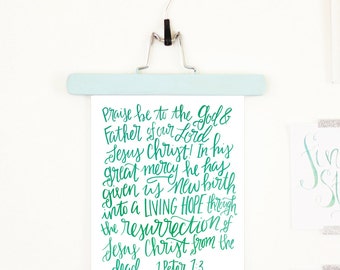 Praise be to the God &
Father of our Lord
Jesus Christ! In his
great mercy he has
given us new birth
into a LIVING HOPE through
the resurrection of
Jesus Christ from the
dead. 1 Peter 1:3